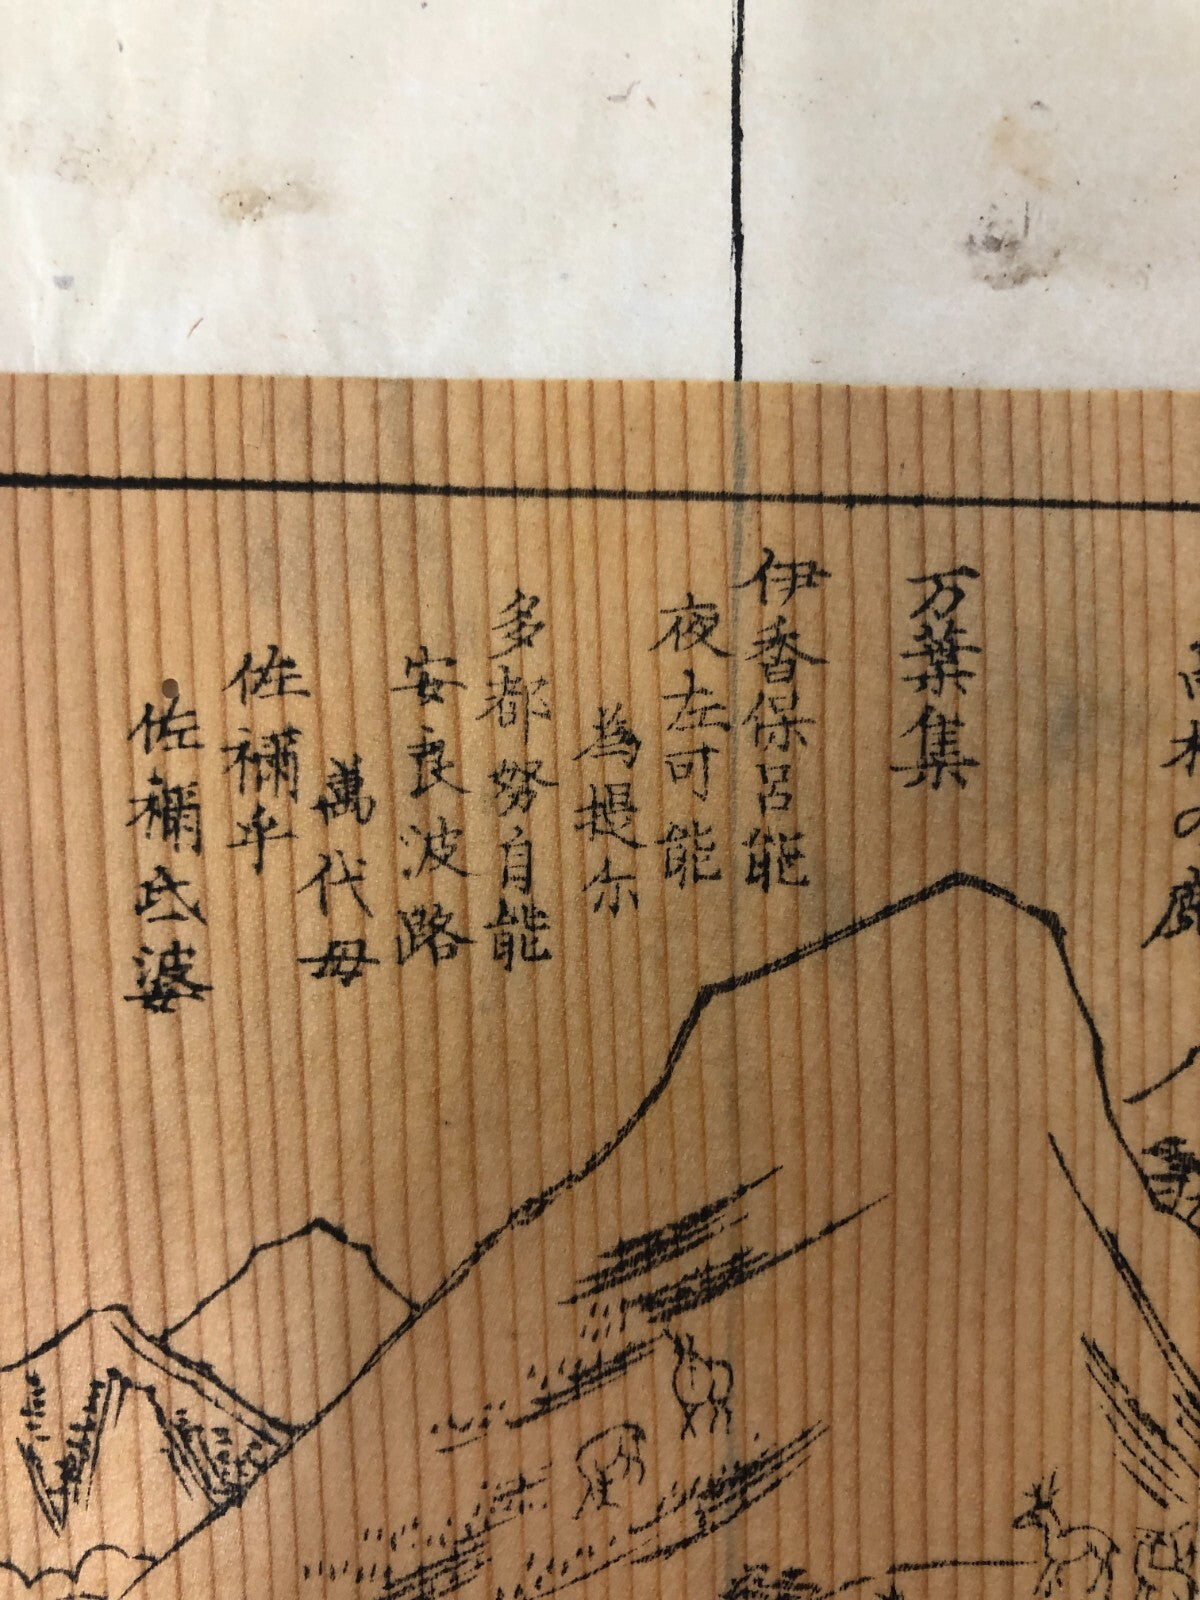 高木の鹿
万葉集
伊香保呂能
夜左可能
為提尓
多都努自能
安良波路
萬代母
佐禰乎
佐禰氐婆